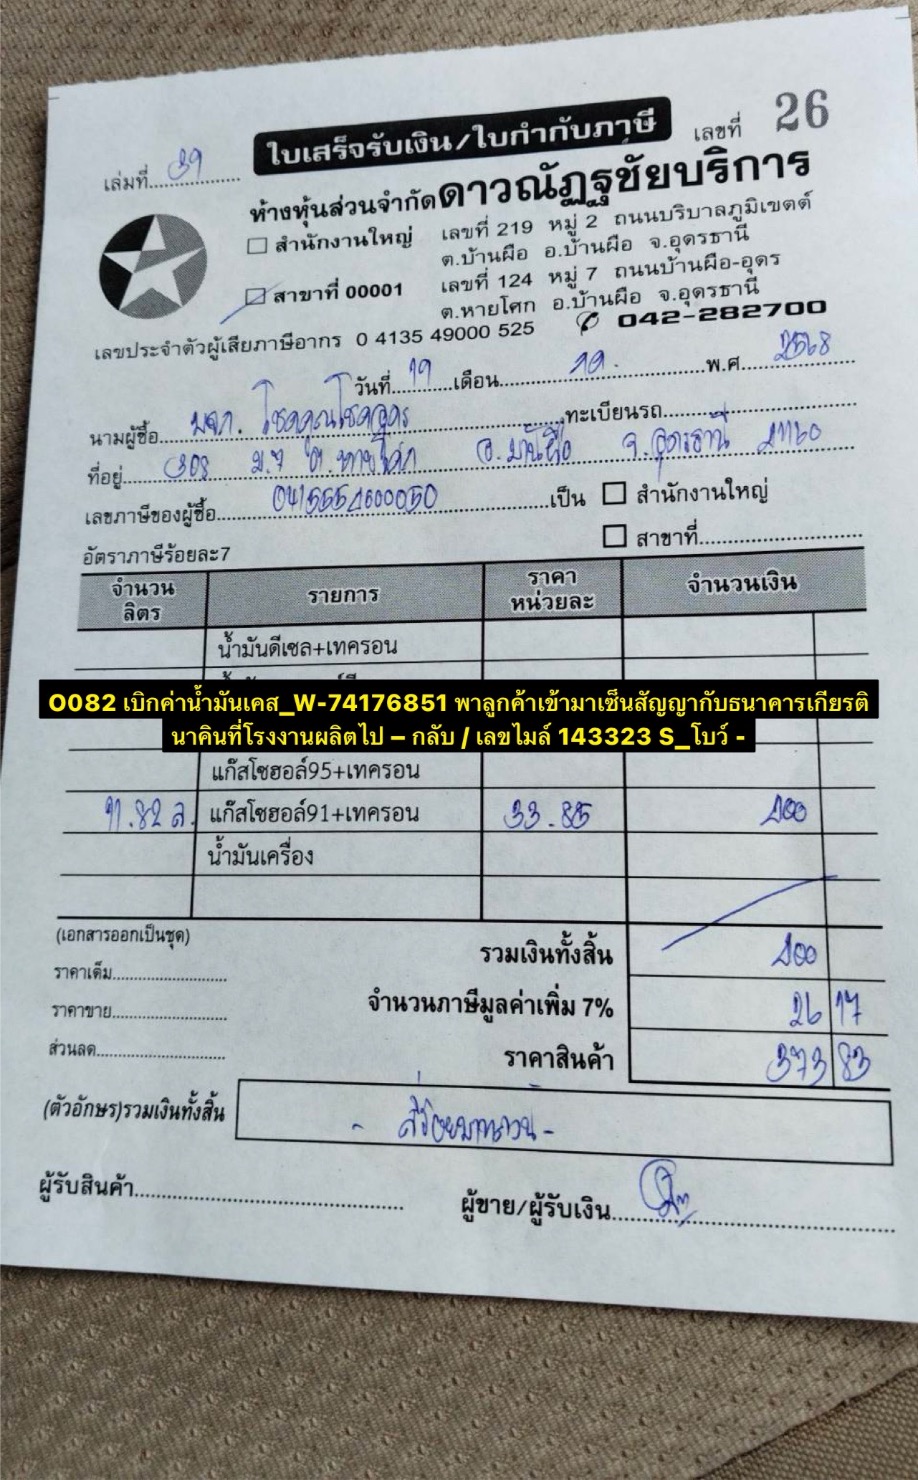 ใบเสร็จรับเงิน/ใบกำกับภาษี
เล่มที่ 39 เลขที่ 26
ห้างหุ้นส่วนจำกัดดาวณัฏฐชัยบริการ
สำนักงานใหญ่ เลขที่ 219 หมู่ 2 ถนนบริบาลภูมิเขตต์
ต.บ้านผือ อ.บ้านผือ จ.อุดรธานี
สาขาที่ 00001 เลขที่ 124 หมู่ 7 ถนนบ้านผือ-อุดร
ต.หายโศก อ.บ้านผือ จ.อุดรธานี
เลขประจำตัวผู้เสียภาษีอากร 0 4135 49000 525 042-282700
วันที่ 19 เดือน พ.ศ 2568
นามผู้ซื้อ หจก. โชคคูณโชคอุดร ทะเบียนรถ
ที่อยู่ 308 ม.7 ต.หายโศก อ.บ้านผือ จ.อุดรธานี 41160
เลขภาษีของผู้ซื้อ เป็น สำนักงานใหญ่
สาขาที่
อัตราภาษีร้อยละ7
จำนวนลิตร รายการ ราคาหน่วยละ จำนวนเงิน
น้ำมันดีเซล+เทครอน
O082 เบิกค่าน้ำมันเคส_W-74176851 พาลูกค้าเข้ามาเซ็นสัญญากับธนาคารเกียรติ
นาคินที่โรงงานผลิตไป – กลับ / เลขไมล์ 143323 S_โบว์ -
แก๊สโซฮอล์95+เทครอน
11.82 ล. แก๊สโซฮอล์91+เทครอน 33.85 400
น้ำมันเครื่อง
(เอกสารออกเป็นชุด)
รวมเงินทั้งสิ้น 400
ราคาเต็ม
จำนวนภาษีมูลค่าเพิ่ม 7% 26 17
ราคาขาย
ราคาสินค้า 373 83
ส่วนลด
(ตัวอักษร)รวมเงินทั้งสิ้น - สี่ร้อยบาทถ้วน -
ผู้รับสินค้า ผู้ขาย/ผู้รับเงิน